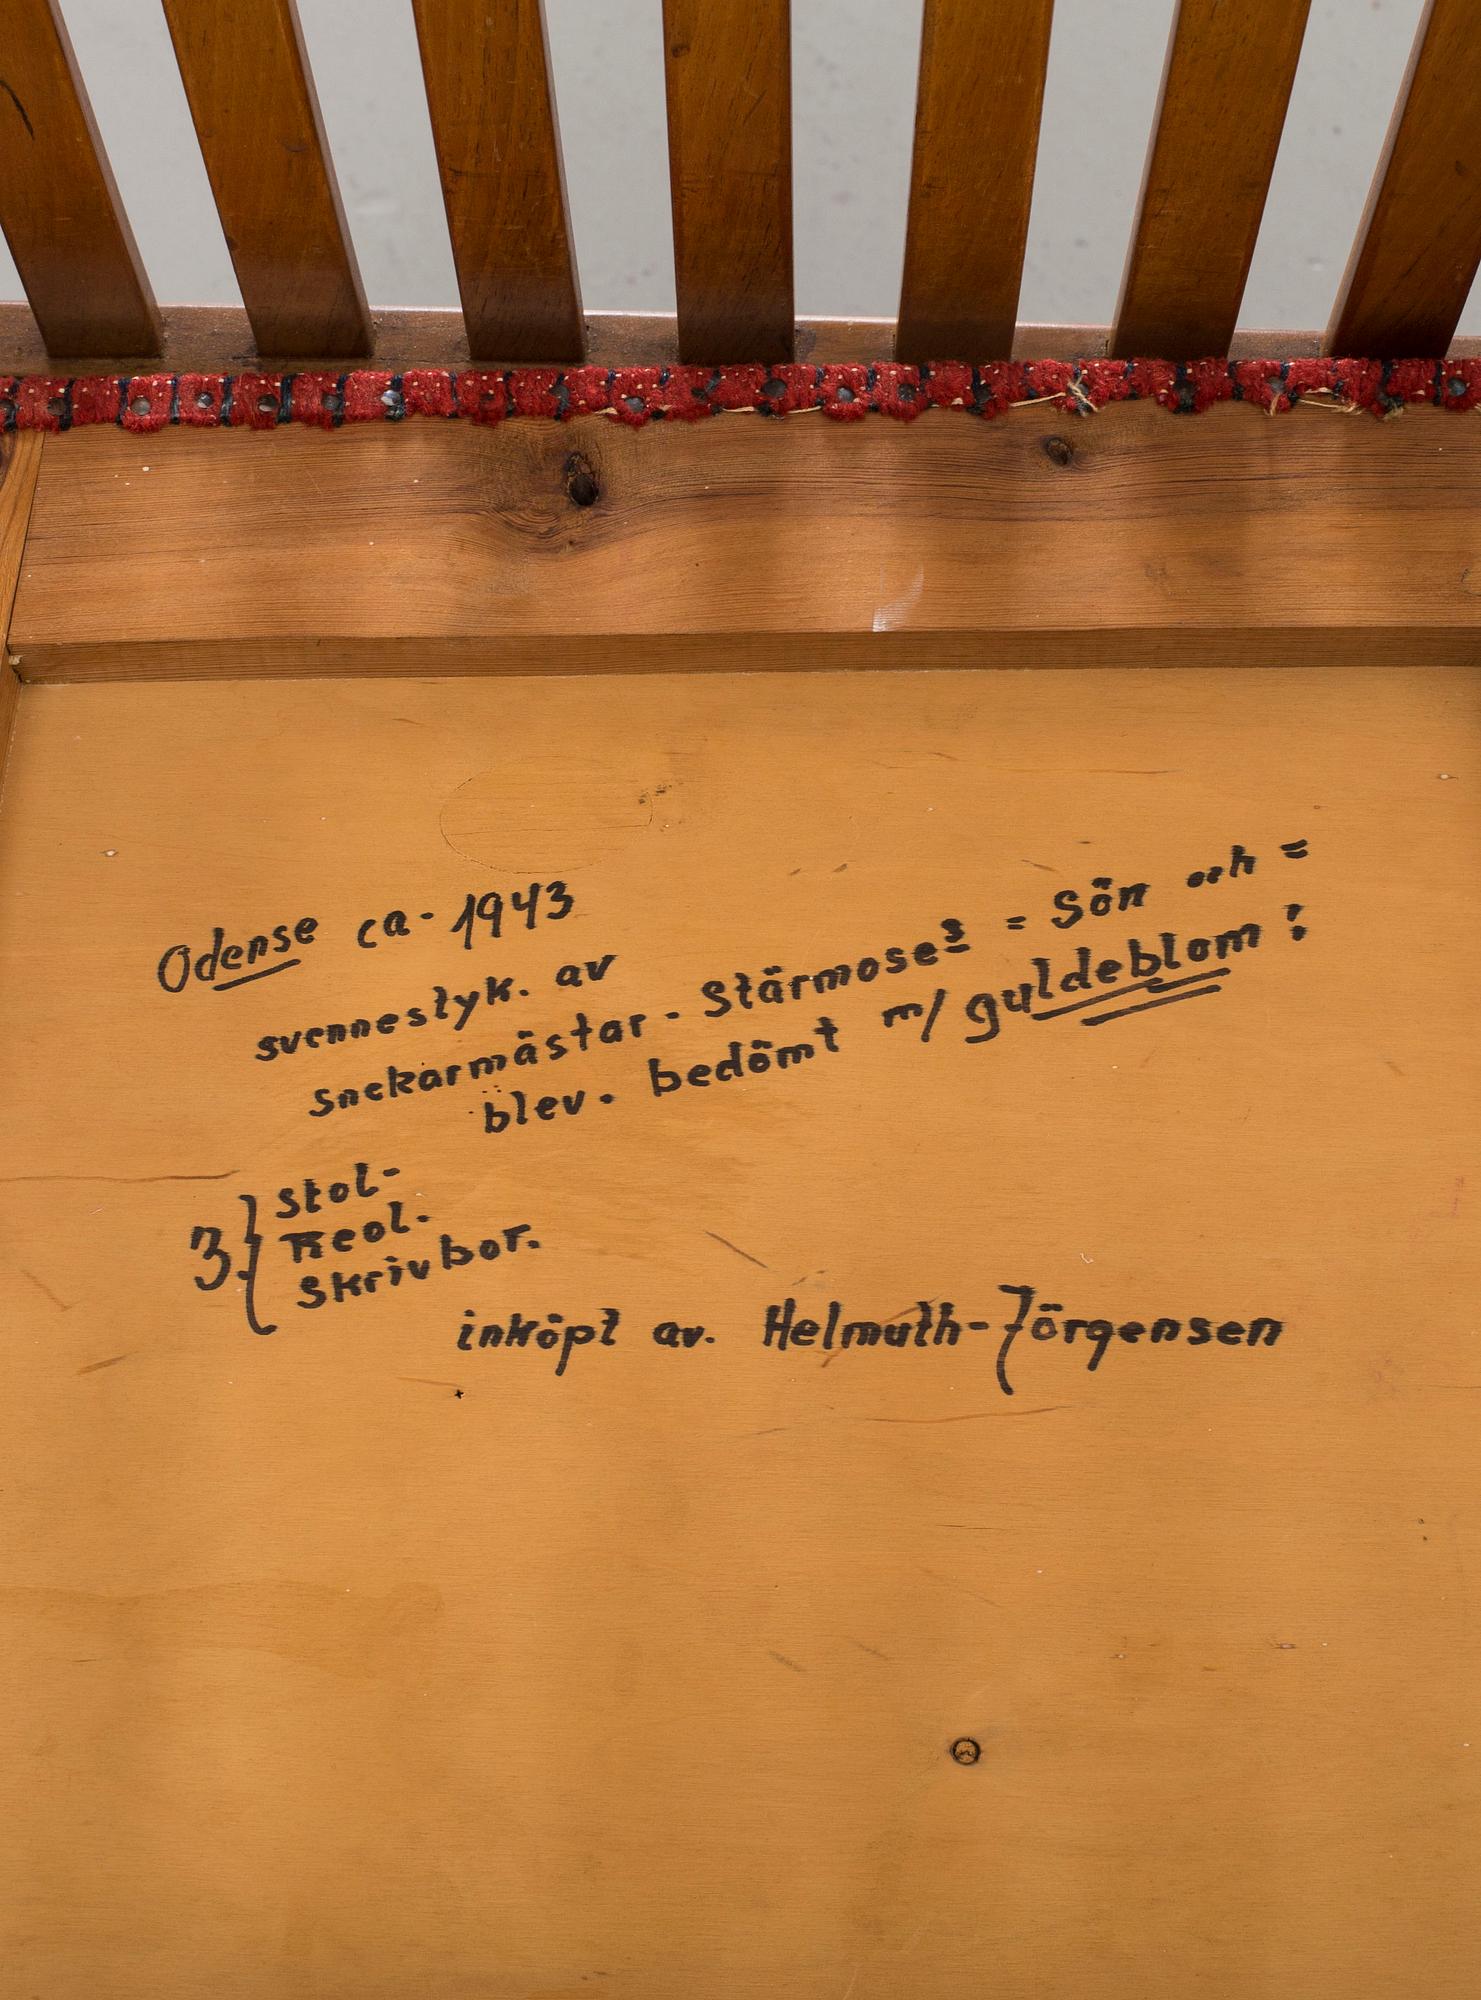 Odense ca. 1943
svennestyk. av
snekarmästar - Stärmoses = Sön och =
blev. bedömt m/ guldeblom !
3. } Stol-
Reol.
Skrivbor.
inköpt av. Helmuth-Jörgensen